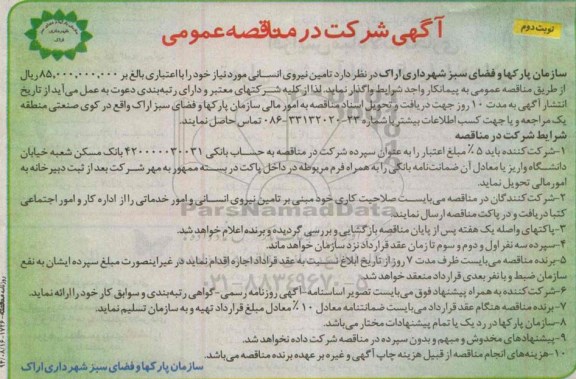 نوبت دوم
آگهی شرکت در مناقصه عمومی
سازمان پارکها و فضای سبز شهرداری اراک در نظر دارد تامین نیروی انسانی مورد نیاز خود را با اعتباری بالغ بر ۸۵,۰۰۰,۰۰۰,۰۰۰ ریال
از طریق مناقصه عمومی به پیمانکار واجد شرایط واگذار نماید. لذا از کلیه شرکتهای معتبر و دارای رتبه‌بندی دعوت به عمل می‌آید از تاریخ
انتشار آگهی به مدت ۱۰ روز جهت دریافت و تحویل اسناد مناقصه به امور مالی سازمان پارکها و فضای سبز اراک واقع در کوی صنعتی منطقه
یک مراجعه و یا جهت کسب اطلاعات بیشتر با شماره ۲۳-۳۳۱۳۲۰۲۰-۰۸۶ تماس حاصل نمایند.
شرایط شرکت در مناقصه
۱-شرکت‌کننده باید ۵٪ مبلغ اعتبار را به عنوان سپرده شرکت در مناقصه به حساب بانکی ۴۲۰۰۰۰۰۳۰۰۳۱ بانک مسکن شعبه خیابان
دانشگاه واریز یا معادل آن ضمانت‌نامه بانکی را به همراه فرم مربوطه در داخل پاکت در بسته ممهور به مهر شرکت بعد از ثبت دبیرخانه به
امور مالی تحویل نماید.
۲-شرکت‌کنندگان در مناقصه می‌بایست صلاحیت کاری خود مبنی بر تامین نیروی انسانی و امور خدماتی را از اداره کار و امور اجتماعی
کتبا دریافت و در پاکت مناقصه ارسال نمایند.
۳-پاکتهای واصله یک هفته پس از پایان مناقصه بازگشایی و بررسی گردیده و برنده اعلام خواهد شد.
۴-سپرده سه نفر اول و دوم و سوم تا زمان عقد قرارداد نزد سازمان خواهد ماند.
۵-برنده مناقصه می‌بایست ظرف مدت ۷ روز از تاریخ ابلاغ نسبت به عقد قرارداد اجاره اقدام نماید در غیر اینصورت مبلغ سپرده ایشان به نفع
سازمان ضبط و با نفر بعدی قرارداد منعقد خواهد شد.
۶-شرکت کننده به همراه پیشنهاد فوق می‌بایست تصویر اساسنامه-آگهی روزنامه رسمی-گواهی رتبه‌بندی و سوابق کار خود را ارائه نماید.
۷-برنده مناقصه هنگام عقد قرارداد می‌بایست ضمانتنامه معادل ۱۰٪ معادل مبلغ قرارداد تهیه و به سازمان تسلیم نماید.
۸-سازمان پارکها در رد یک یا تمام پیشنهادات مختار می‌باشد.
۹-پیشنهادهای مخدوش و مبهم و بدون سپرده در مناقصه شرکت داده نخواهد شد.
۱۰-هزینه‌های انجام مناقصه از قبیل هزینه چاپ آگهی و غیره بر عهده برنده مناقصه می‌باشد.
سازمان پارکها و فضای سبز شهرداری اراک
ParsNamadData
۰۲۱-۸۸۳۴۹۶۷۰-۵